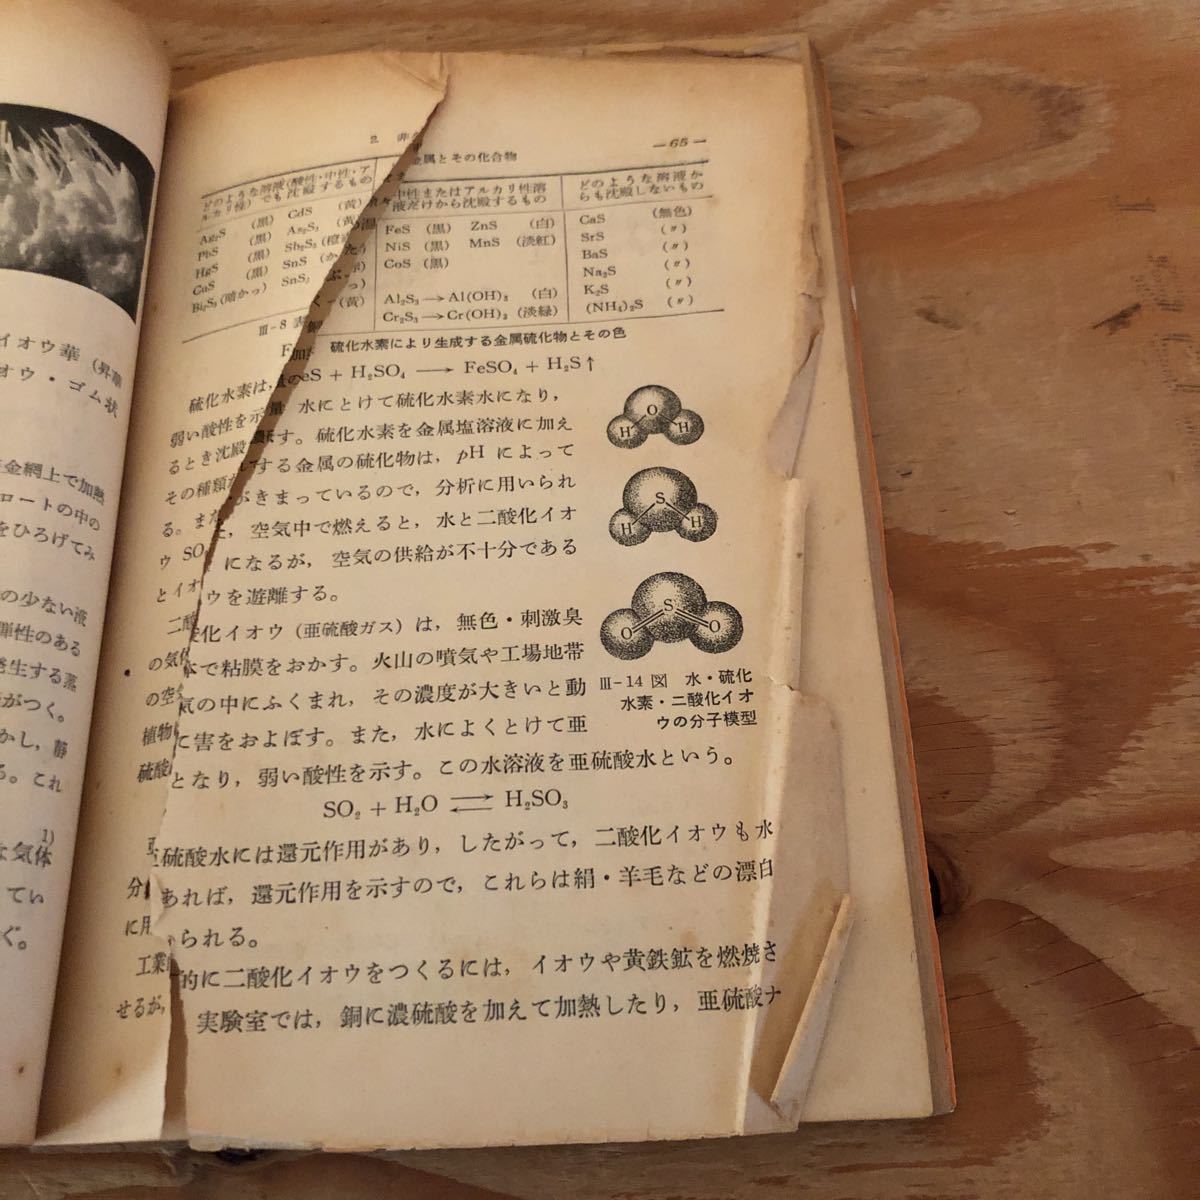 イオウ華(昇華
オウ・ゴム状
金網上で加熱
ロートの中の
をひろげてみ
の少ない液
弾性のある
発生する蒸
がつく。
かし,静
る。これ
1)
な気体
てい
ぐ。
2 非 属とその化合物 —65—
どのような溶液(酸性・中性・ア
ルカリ性)でも沈殿するもの
中性またはアルカリ性溶
液だけから沈殿するもの
どのような溶液か
らも沈殿しないもの
Ag₂S (黒) CdS (黄)
PbS (黒) As₂S₃ (黄)
HgS (黒) Sb₂S₃ (橙
CuS (黒) SnS (かっ
Bi₂S₃ (暗かっ) SnS₂ (黄)
FeS (黒) ZnS (白)
NiS (黒) MnS (淡紅)
CoS (黒)
Al₂S₃→Al(OH)₃ (白)
Cr₂S₃→Cr(OH)₃ (淡緑)
CaS (無色)
SrS (〃)
BaS (〃)
Na₂S (〃)
K₂S (〃)
(NH₄)₂S (〃)
Ⅲ-8 表 硫化水素により生成する金属硫化物とその色
FeS + H₂SO₄ → FeSO₄ + H₂S↑
硫化水素は, 水にとけて硫化水素水になり,
弱い酸性を示す。硫化水素を金属塩溶液に加え
るとき沈殿する金属の硫化物は, pH によって
その種類がきまっているので, 分析に用いられ
る。また, 空気中で燃えると, 水と二酸化イオ
ウ SO になるが, 空気の供給が不十分である
とイオウを遊離する。
二酸化イオウ(亜硫酸ガス)は, 無色・刺激臭
の気体で粘膜をおかす。火山の噴気や工場地帯
の空気の中にふくまれ, その濃度が大きいと動
植物に害をおよぼす。また, 水によくとけて亜
硫酸となり, 弱い酸性を示す。この水溶液を亜硫酸水という。
SO₂ + H₂O ⇄ H₂SO₃
亜硫酸水には還元作用があり, したがって, 二酸化イオウも水
分があれば, 還元作用を示すので, これらは絹・羊毛などの漂白
に用いられる。
工業的に二酸化イオウをつくるには, イオウや黄鉄鉱を燃焼さ
せるが, 実験室では, 銅に濃硫酸を加えて加熱したり, 亜硫酸ナ
O
H H
S
H H
S
O O
Ⅲ-14 図 水・硫化
水素・二酸化イオ
ウの分子模型